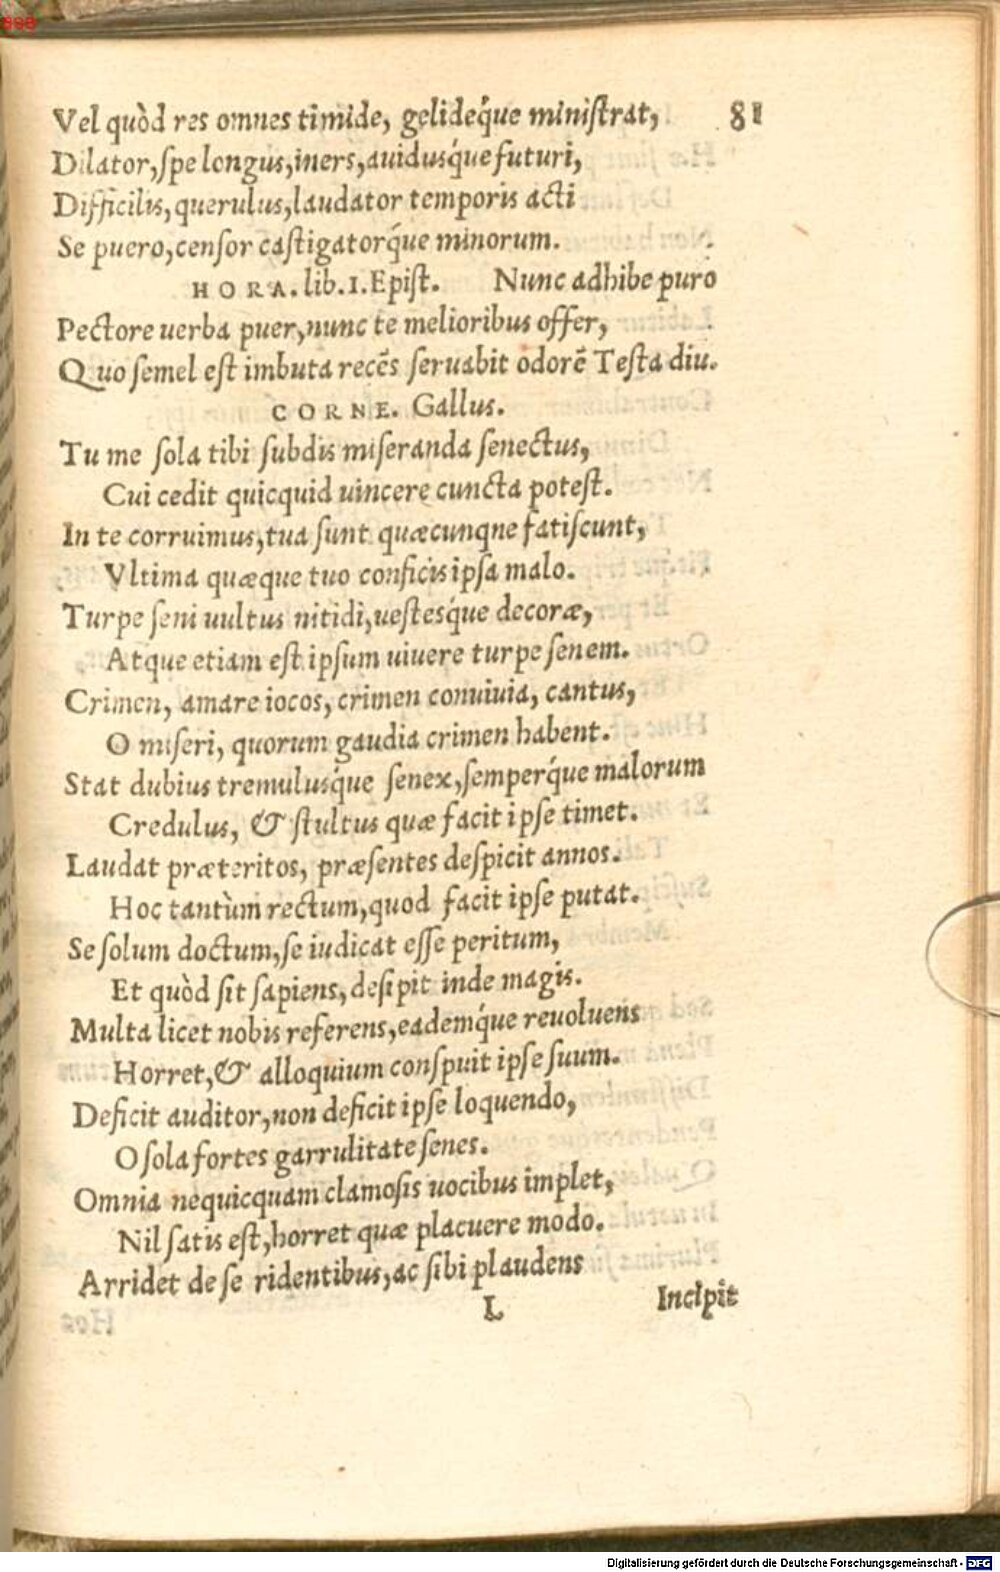 888
Vel quòd res omnes timide, gelidéque miniſtrat, 81
Dilator, ſpe longus, iners, auidusq́ue futuri,
Difficilis, querulus, laudator temporis acti
Se puero, cenſor caſtigatorq́ue minorum.
HORA. lib. 1. Epiſt. Nunc adhibe puro
Pectore uerba puer, nunc te melioribus offer,
Quo ſemel eſt imbuta recẽs ſeruabit odorẽ Teſta diu.
CORNE. Gallus.
Tu me ſola tibi ſubdis miſeranda ſenectus,
Cui cedit quicquid uincere cuncta poteſt.
In te corruimus, tua ſunt quæcunque fatiſcunt,
Vltima quæque tuo conficis ipſa malo.
Turpe ſeni uultus nitidi, ueſtesq́ue decoræ,
Atque etiam eſt ipſum uiuere turpe ſenem.
Crimen, amare iocos, crimen conuiuia, cantus,
O miſeri, quorum gaudia crimen habent.
Stat dubius tremulusq́ue ſenex, ſemperq́ue malorum
Credulus, & ſtultus quæ facit ipſe timet.
Laudat præteritos, præſentes deſpicit annos.
Hoc tantùm rectum, quod facit ipſe putat.
Se ſolum doctum, ſe iudicat eſſe peritum,
Et quòd ſit ſapiens, deſipit inde magis.
Multa licet nobis referens, eademq́ue reuoluens
Horret, & alloquium conſpuit ipſe ſuum.
Deficit auditor, non deficit ipſe loquendo,
O ſola fortes garrulitate ſenes.
Omnia nequicquam clamoſis uocibus implet,
Nil ſatis eſt, horret quæ placuere modo.
Arridet de ſe ridentibus, ac ſibi plaudens
L Incipit
Digitalisierung gefördert durch die Deutsche Forschungsgemeinschaft - DFG